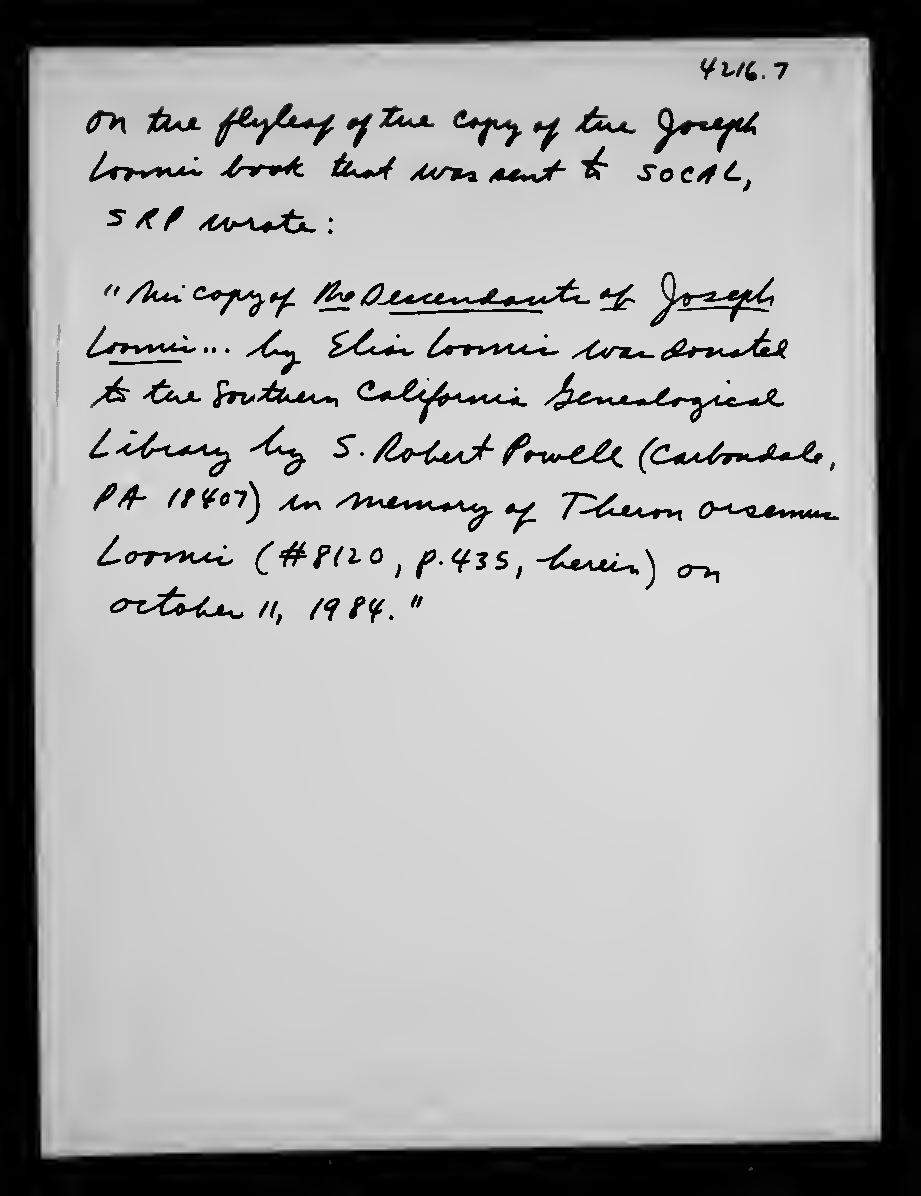 4216.7
On the flyleaf of the copy of the Joseph
Loomis book that was sent to SOCAL,
SRP wrote:
"This copy of The Descendants of Joseph
Loomis... by Elias Loomis was donated
to the Southern California Genealogical
Library by S. Robert Powell (Carbondale,
PA 18407) in memory of Theron Orsemus
Loomis (#8120, p. 435, herein) on
October 11, 1984."